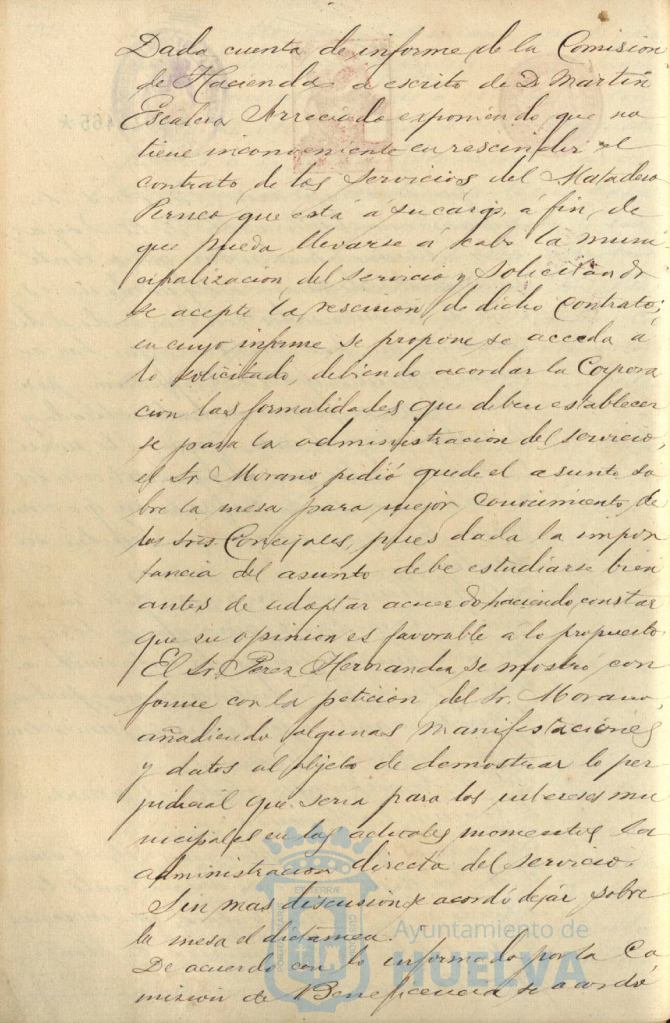 Dada cuenta de informe de la Comision
de Hacienda á escrito de D. Martin
Escalera Arreciado exponiendo que no
tiene inconveniente en rescindir el
contrato de los servicios del Matadero
que está á su cargo, á fin de
que pueda llevarse á cabo la muni
cipalizacion del servicio y solicitando
se acepte la rescision de dicho contrato;
en cuyo informe se propone se acceda á
lo solicitado, debiendo acordar la Corpora
cion las formalidades que deben establecer
se para la administracion del servicio,
el Sr. Morano pidió quede el asunto so
bre la mesa para mejor conocimiento de
los Sres Concejales, pues dada la impor
tancia del asunto debe estudiarse bien
antes de adoptar acuerdo haciendo constar
que su opinion es favorable á lo propuesto.
El Sr. Perez Hernandez se mostró con
forme con la peticion del Sr. Morano,
añadiendo algunas manifestaciones
y datos al objeto de demostrar lo per
judicial que seria para los intereses mu
nicipales en los actuales momentos la
administracion directa del servicio.
Sin mas discusion se acordó dejar sobre
la mesa el dictamen.
De acuerdo con lo informado por la Co
mision de Beneficencia se acordó
Ayuntamiento de
HUELVA